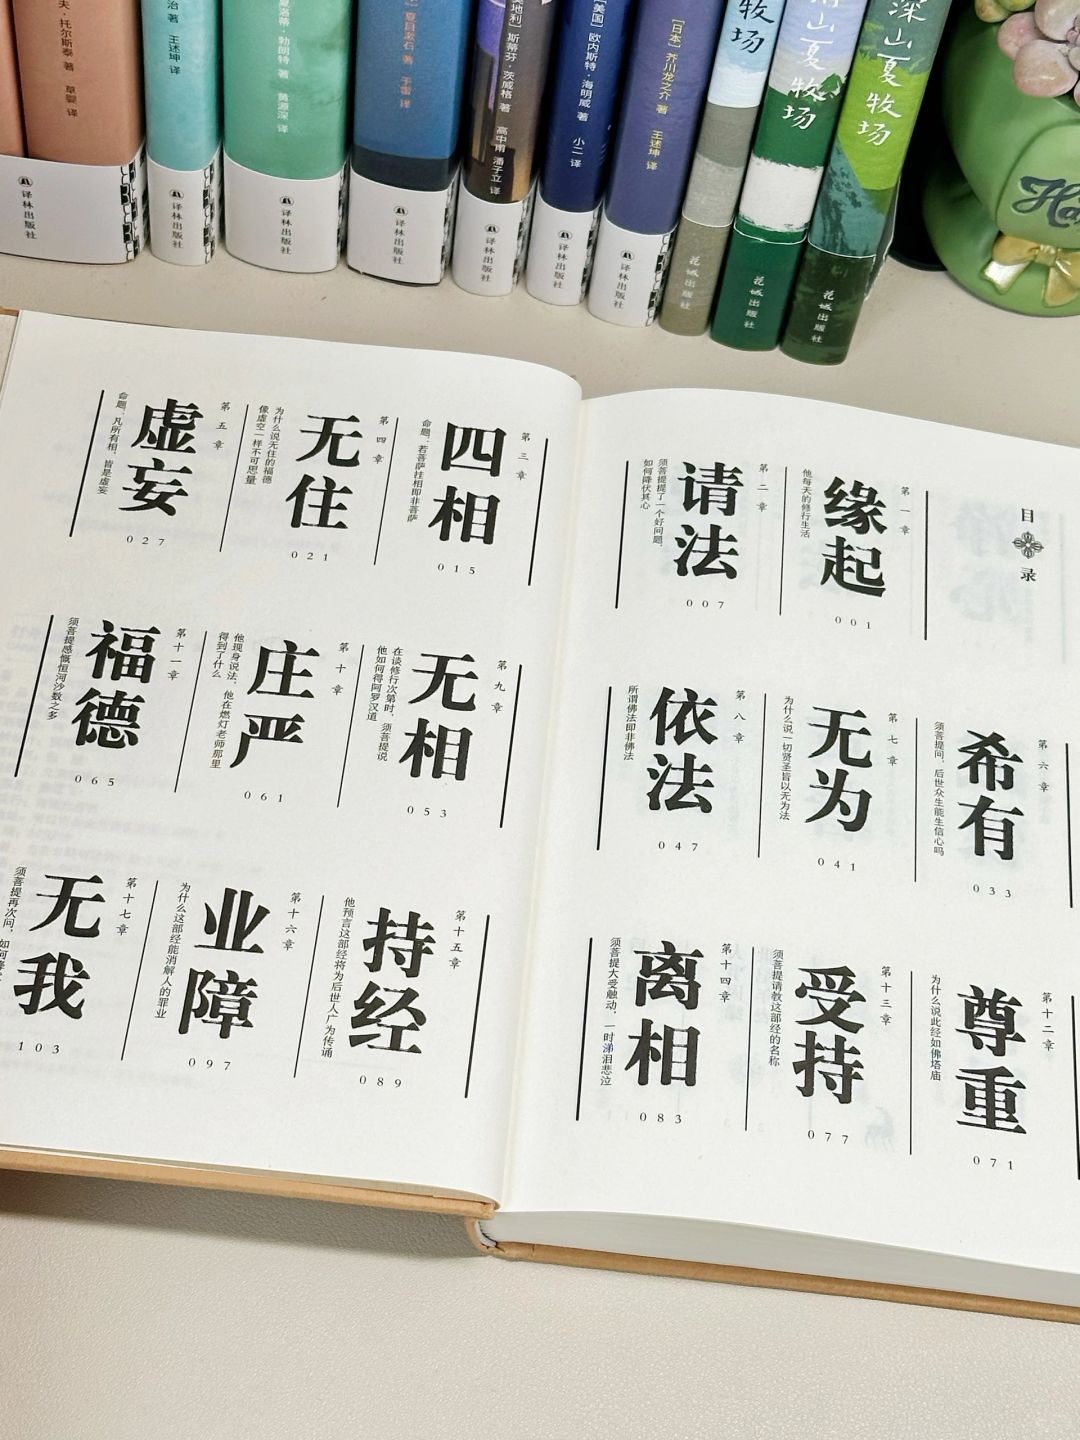 夫·托尔斯泰 著 草婴 译
译林出版社
治 著 王述坤 译
译林出版社
夏洛蒂·勃朗特 著 黄源深 译
译林出版社
夏目漱石 著 于雷 译
译林出版社
斯蒂芬·茨威格 著 高中甫 潘子立 译
译林出版社
[美国] 欧内斯特·海明威 著 小二 译
译林出版社
[日本] 芥川龙之介 著 王述坤 译
译林出版社
牧场
花城出版社
山夏牧场
花城出版社
深山夏牧场
花城出版社
目录
第一章
缘起
他每天的修行生活
001
第二章
请法
须菩提提了一个好问题，
如何降伏其心
007
第三章
四相
命题：若菩萨住相即非菩萨
015
第四章
无住
为什么说无住的福德
像虚空一样不可思量
021
第五章
虚妄
命题：凡所有相，皆是虚妄
027
第六章
希有
须菩提问，后世众生能生信心吗
033
第七章
无为
为什么说一切贤圣皆以无为法
041
第八章
依法
所谓佛法即非佛法
047
第九章
无相
在谈修行次第时，须菩提说
他如何得阿罗汉道
053
第十章
庄严
他现身说法，他在燃灯老师那里
得到了什么
061
第十一章
福德
须菩提感慨恒河沙数之多
065
第十二章
尊重
为什么说此经如佛塔庙
071
第十三章
受持
须菩提请教这部经的名称
077
第十四章
离相
须菩提大受触动，一时涕泪悲泣
083
第十五章
持经
他预言这部经将为后世人广为传诵
089
第十六章
业障
为什么这部经能消解人的罪业
097
第十七章
无我
须菩提再次问，如何
103